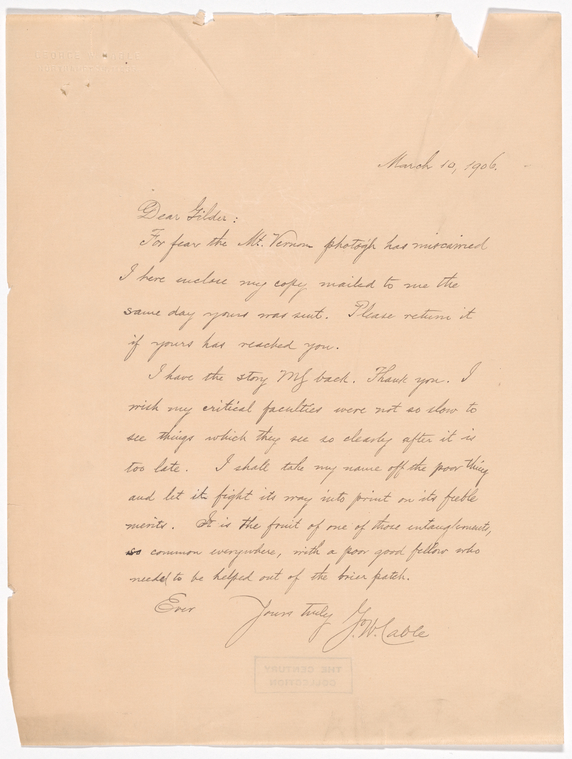 March 10, 1906.
Dear Gilder:
For fear the Mt. Vernon photogh has miscarried
I here enclose my copy mailed to me the
same day yours was sent. Please return it
if yours has reached you.
I have the story MS back. Thank you. I
wish my critical faculties were not so slow to
see things which they see so clearly after it is
too late. I shall take my name off the poor thing
and let it fight its way into print on its feeble
merits. It is the fruit of one of those entanglements,
so common everywhere, with a poor good fellow who
needed to be helped out of the brier patch.
Ever Yours truly G.W. Cable
THE CENTURY
COLLECTION